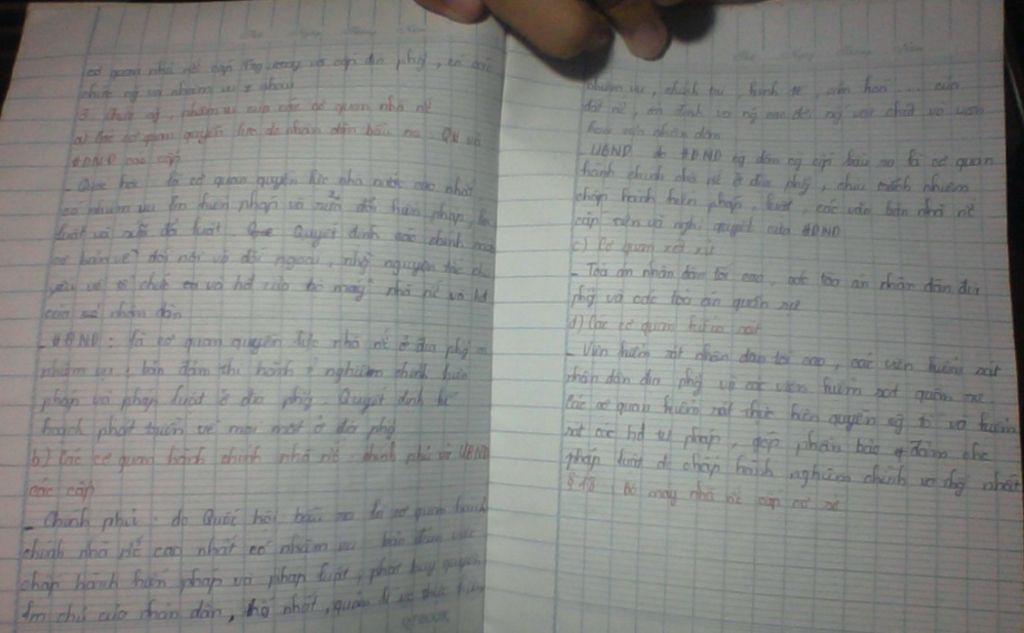 cơ quan nhà nc cấp Trg ương và cấp địa phg, có các
chức ng và nhiệm vụ ≠ nhau
3. Chức ng, nhiệm vụ của các cơ quan nhà nc
a) Các cơ quan quyền lực do nhân dân bầu ra: QH và
HĐND các cấp
- Quốc hội: là cơ quan quyền lực nhà nước cao nhất
có nhiệm vụ làm hiến pháp và sửa đổi hiến pháp, làm
luật và sửa đổi luật. Quyết định các chính sách
cơ bản về đối nội và đối ngoại, nhg nguyên tắc chủ
yếu về tổ chức và hđ của bộ máy nhà nc và hđ
của nhân dân
- HĐND: là cơ quan quyền lực nhà nc ở địa phg
nhiệm vụ: bảo đảm thi hành nghiêm chỉnh hiến
pháp và pháp luật ở địa phg. Quyết định kế
hoạch phát triển về mọi mặt ở địa phg
b) Các cơ quan hành chính nhà nc: chính phủ và UBND
các cấp
- Chính phủ: do Quốc hội bầu ra là cơ quan hành
chính nhà nc cao nhất có nhiệm vụ bảo đảm việc
chấp hành hiến pháp và pháp luật, phát huy quyền
làm chủ của nhân dân, thg nhất, quản lí việc thực hiện
nhiệm vụ, chính trị, kinh tế, văn hoá ... của
đất nc, ổn định và ng cao đời sg vật chất và văn
hoá của nhân dân
- UBND do HĐND cg cấp bầu ra là cơ quan
hành chính nhà nc ở địa phg, chịu trách nhiệm
chấp hành hiến pháp, luật, các văn bản nhà nc
cấp trên và nghị quyết của HĐND
c) Cơ quan xét xử
- Toà án nhân dân tối cao, các tòa án nhân dân địa
phg và các toà án quân sự
d) Các cơ quan kiểm sát
- Viện kiểm sát nhân dân tối cao, các viện kiểm sát
nhân dân địa phg và các viện kiểm sát quân sự
Các cơ quan kiểm sát thực hiện quyền cg tố và kiểm
sát các hđ tư pháp, góp phần bảo đảm cho
pháp luật đc chấp hành nghiêm chỉnh và thg nhất
§ 18: Bộ máy nhà nc cấp cơ sở